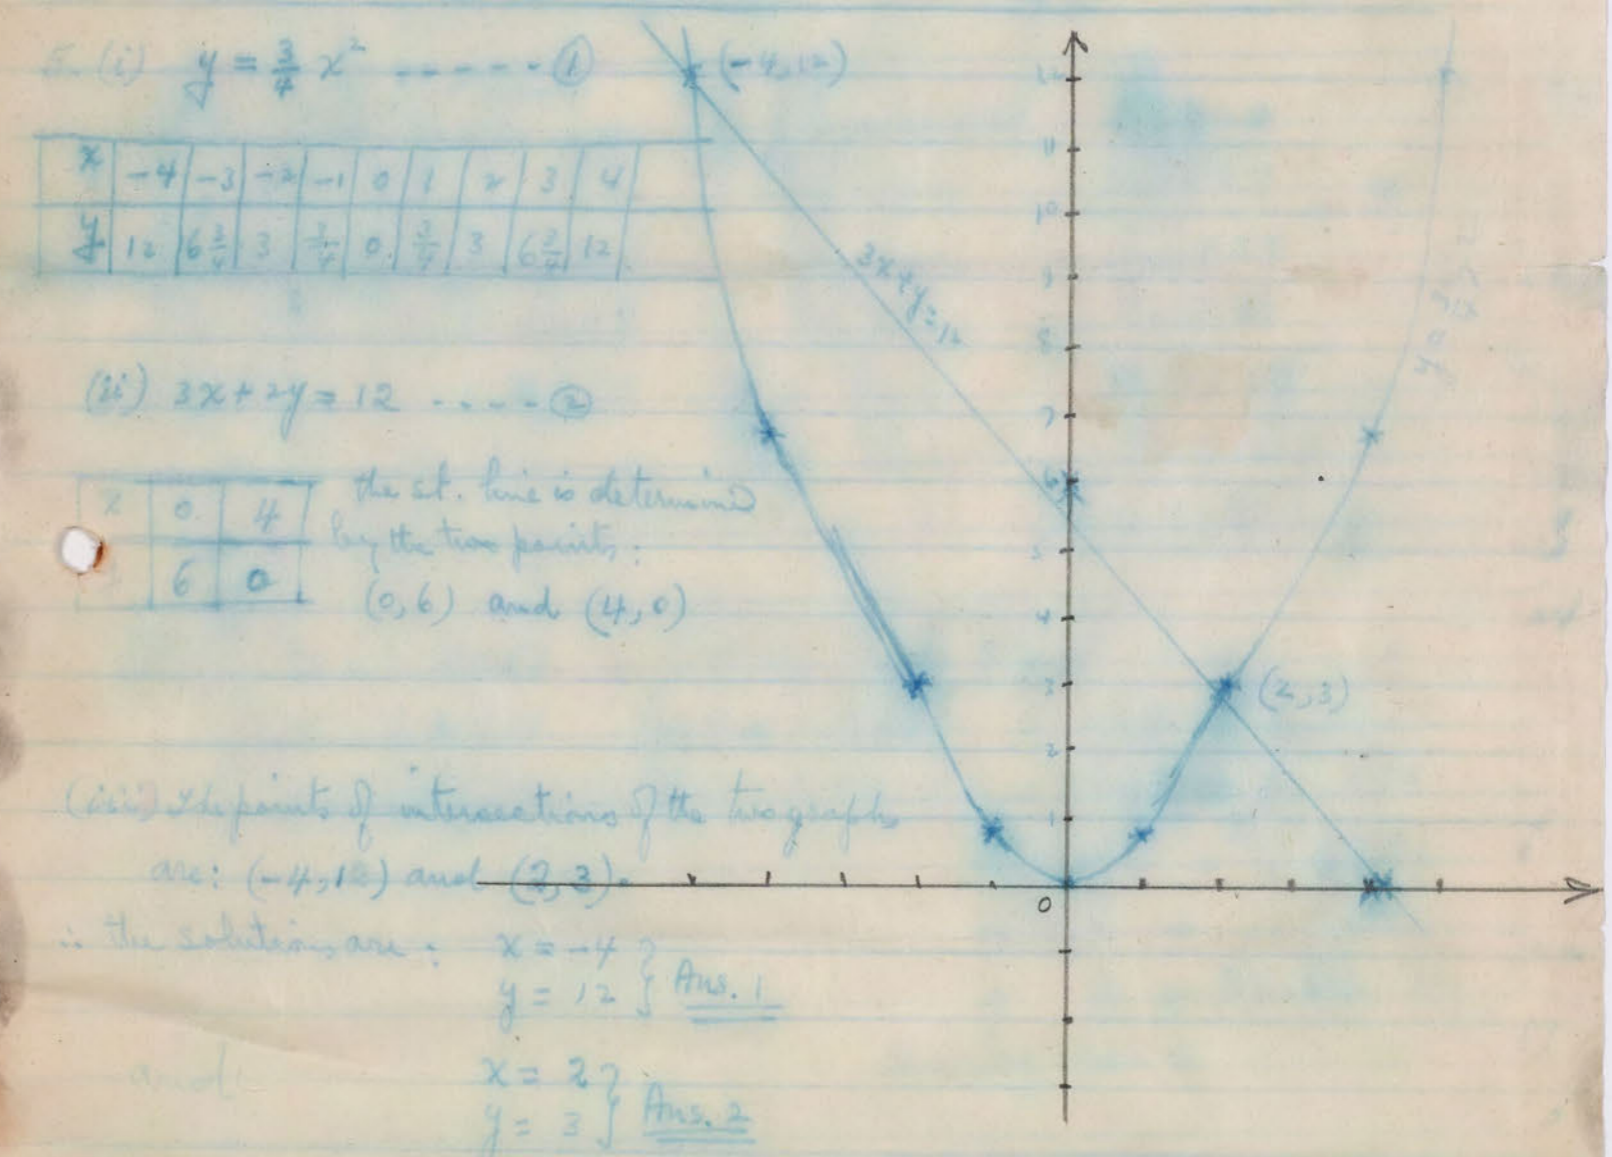 5. (i) y = 3/4 x² ------ ①
x | -4 | -3 | -2 | -1 | 0 | 1 | 2 | 3 | 4
y | 12 | 6 3/4 | 3 | 3/4 | 0 | 3/4 | 3 | 6 3/4 | 12
(ii) 3x + 2y = 12 ----- ②
x | 0 | 4
6 | 0
the st. line is determined
by the two points:
(0,6) and (4,0)
(iii) The points of intersections of the two graphs
are: (-4,12) and (2,3).
∴ the solutions are: x = -4
y = 12 } Ans. 1
and x = 2
y = 3 } Ans. 2
(-4,12)
12
11
10
9
8
7
6
5
4
3
2
1
0
3x+y=12
(2,3)